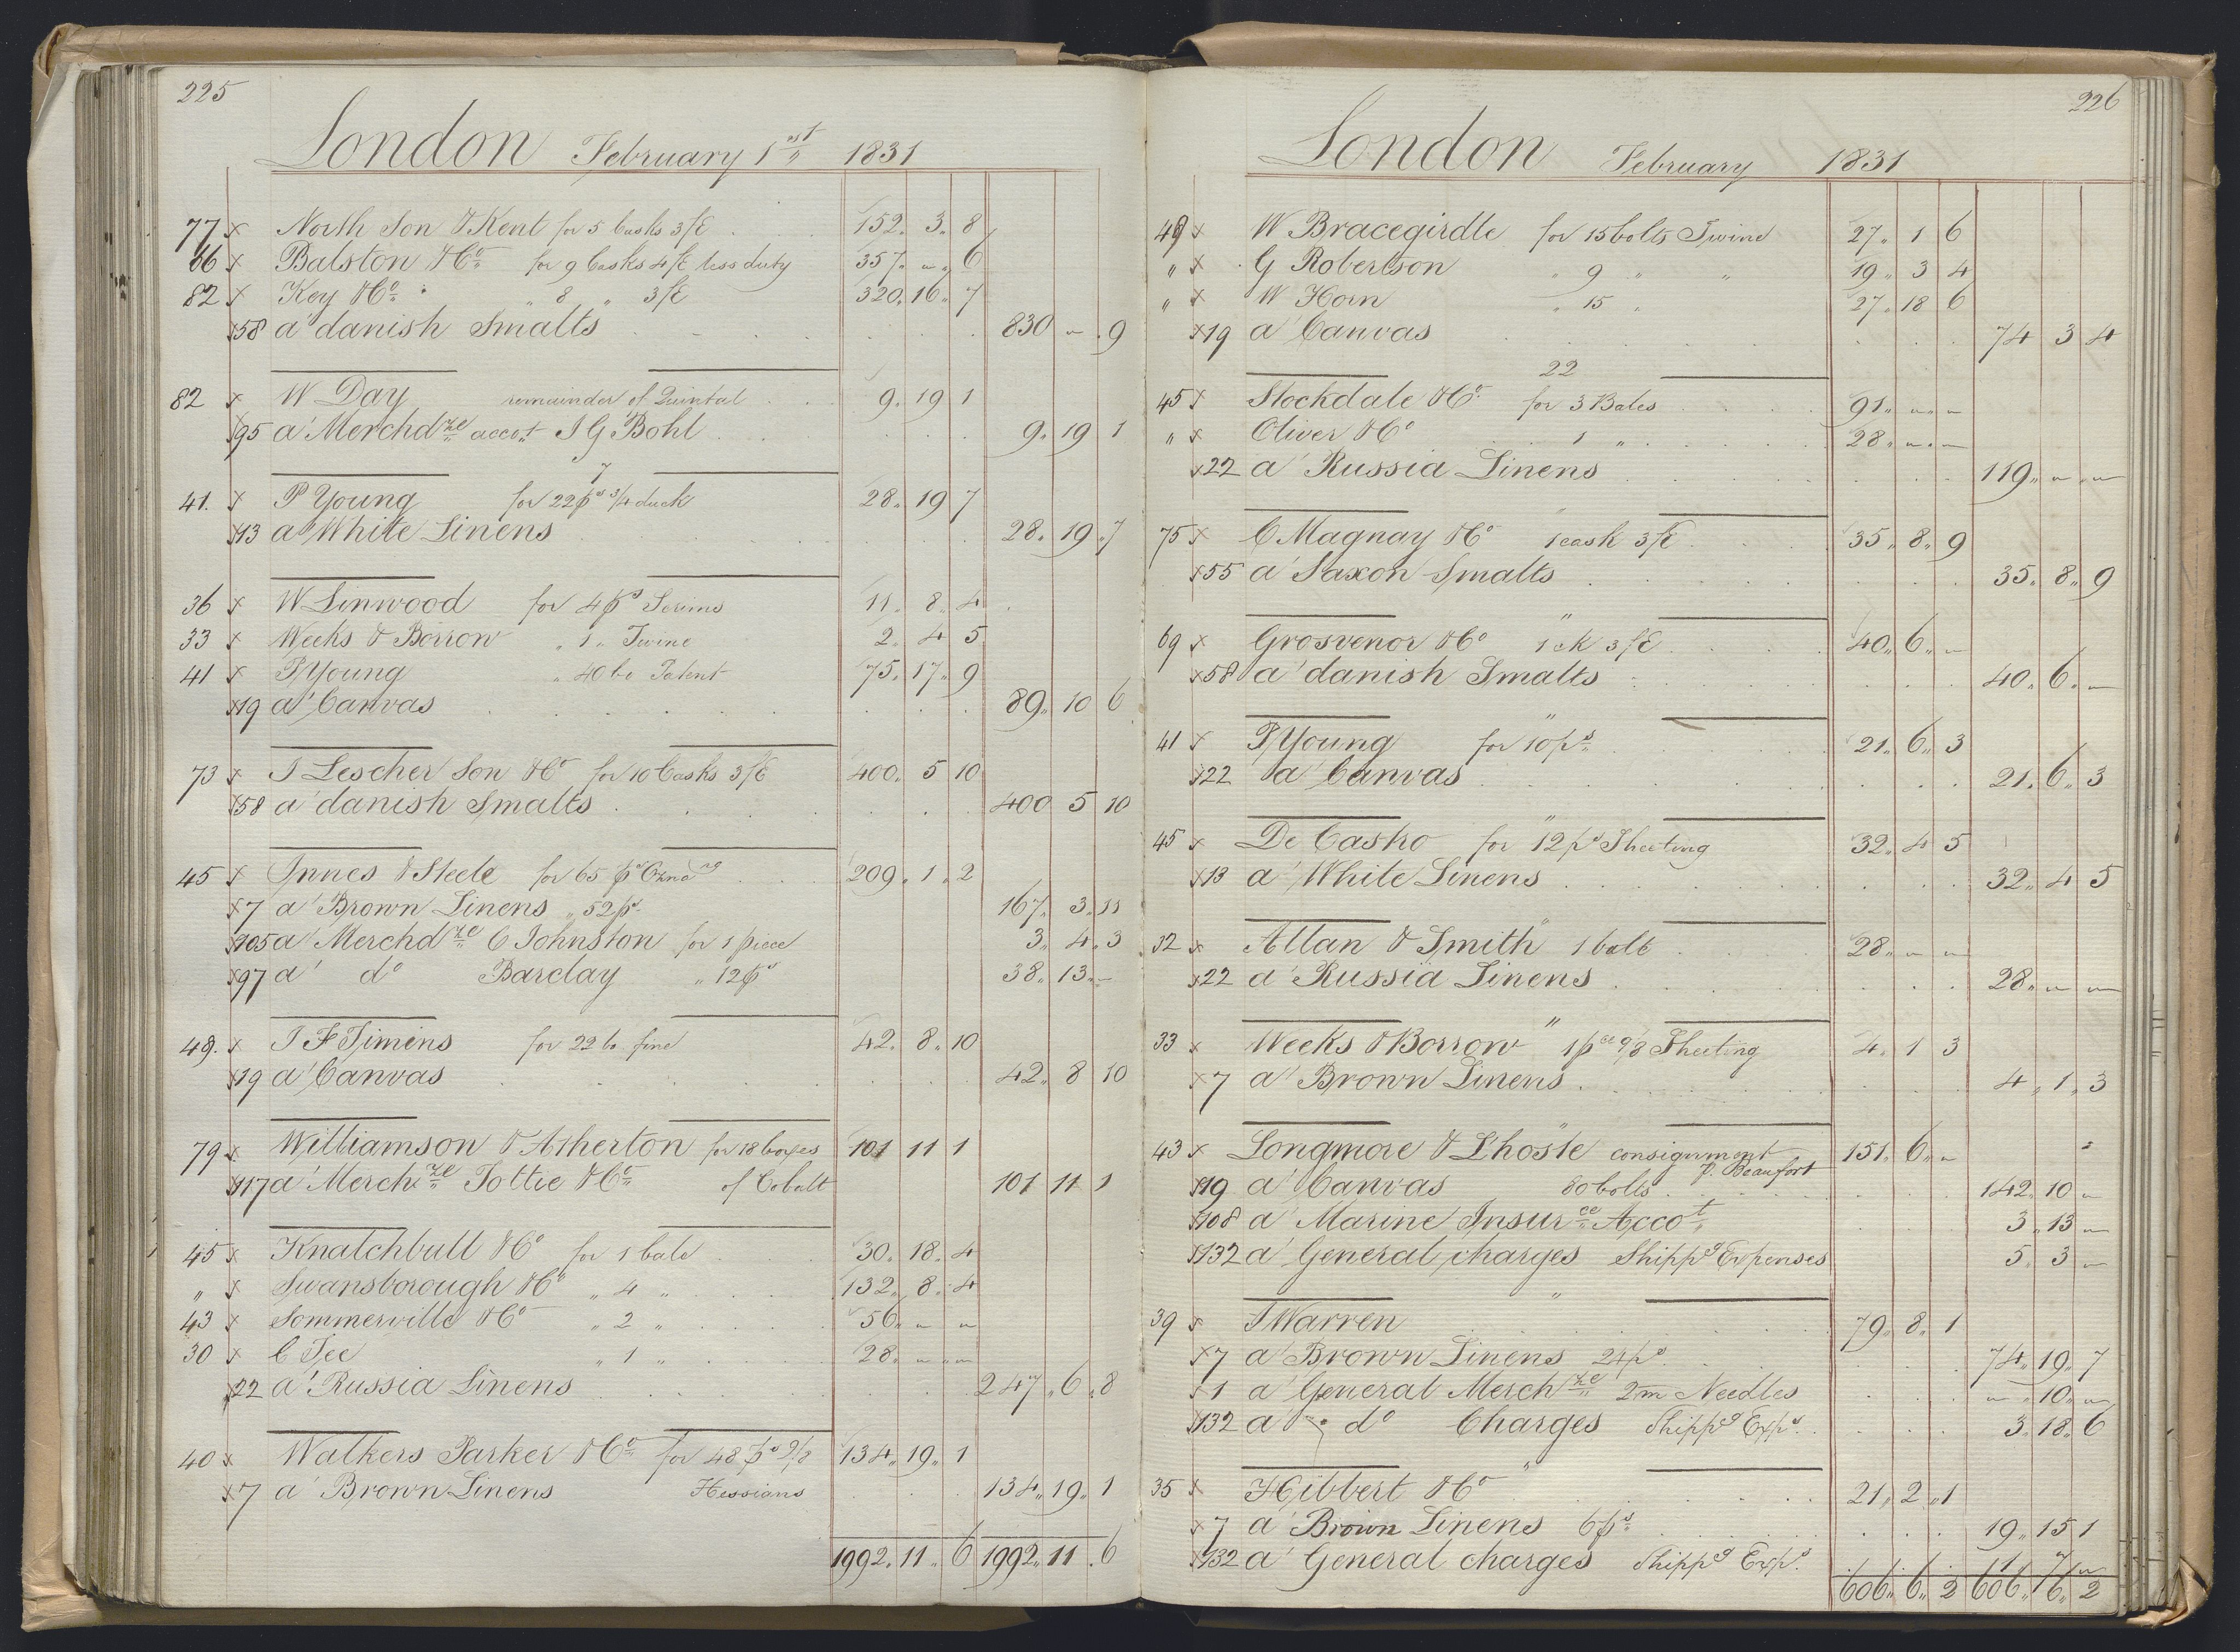 225
London February 1st 1831
77 x North Son & Kent for 5 Casks 3/E 152. 3. 8
66 x Balston & Co for 9 Casks 4/E less duty 357. " . 6
82 x Key & Co " 8 " 3/E 320. 16. 7
x58 a' danish Smalts 830 " . 9
82 x W Day remainder of Quintal 9. 19 1
x95 a' Merchdze accot J G Bohl 9. 19 1
7
41. x P Young for 22 ps 3/4 duck 28. 19 7
x13 a' White Linens 28. 19. 7
36 x W Linwood for 4 ps Scrims 11. 8. 4
33 x Weeks & Borrow " 1 " Twine 2. 4 5
41 x P Young " 40 bo Patent 75. 17. 9
x19 a' Canvas 89. 10 6
73 x J Lescher Son & Co for 10 Casks 3/E 400. 5 10
x58 a' danish Smalts 400 5 10
45 x Innes & Steele for 65 ps 209. 1. 2
x7 a' Brown Linens " 52 ps 167. 3. 11
x105 a' Merchdze C Johnston for 1 piece 3. 4. 3
x97 a' do Barclay " 12 ps 38. 13. "
49. x J F Timins for 22 bo fine 42. 8. 10
x19 a' Canvas 42. 8 10
79 x Williamson & Atherton for 18 boxes 101 11 1
x117 a' Merchze Tottie & Co of Cobalt 101 11 1
45 x Knatchbull & Co for 1 bale 30. 18. 4
" x Swansborough & Co " 4 " 132. 8. 4
43 x Sommerville & Co " 2 " 56. " "
30 x C Tee " 1 " 28. " "
x22 a' Russia Linens 247. 6. 8
40 x Walkers Parker & Co for 48 ps 9/8 134. 19. 1
x7 a' Brown Linens Hessians 134. 19. 1
1992. 11. 6 1992. 11. 6
226
London February 1831
49 x W Bracegirdle for 15 bolts Twine 27. 1 6
" x G Robertson " 9 " " 19. 3 4
" x W Horn " 15 " 27. 18 6
x19 a' Canvas 74 3 4
22
45 x Stockdale & Co for 3 Bales 91. " "
" x Oliver & Co 1 " 28. " "
x22 a' Russia Linens 119. " "
"
75 x C Magnay & Co 1 cask 3/E 35. 8. 9
x55 a' Saxon Smalts 35. 8. 9
"
69 x Grosvenor & Co 1 ck 3/E 40. 6. "
x58 a' danish Smalts 40. 6. "
"
41 x P Young for 10 ps 21. 6. 3
x22 a' Canvas 21. 6. 3
"
45 x De Castro for 12 ps Sheeting 32. 4 5
x13 a' White Linens 32. 4 5
"
32 x Allan & Smith 1 bale 28. " "
x22 a' Russia Linens 28. " "
"
33 x Weeks & Borrow 1 pce 9/8 Sheeting 4. 1 3
x7 a' Brown Linens 4. 1. 3
"
43 x Longmore & L'hoste consignment 151. 6. "
p. Beaufort
x19 a' Canvas 80 bolts 142. 10 "
x108 a' Marine Insurce Accot 3. 13 "
x132 a' General charges Shippg Expenses 5. 3 "
"
39 x J Warren 79. 8. 1
x7 a' Brown Linens 24 ps 74. 19. 7
x1 a' General Merchze 2m Needles " . 10. "
x132 a' do Charges Shippg Exps 3. 18. 6
"
35 x J Hibbert & Co 21. 2. 1
x7 a' Brown Linens 6 ps 19. 15 1
x132 a' General charges Shippg Exps 1. 7 "
606. 6. 2 606. 6. 2